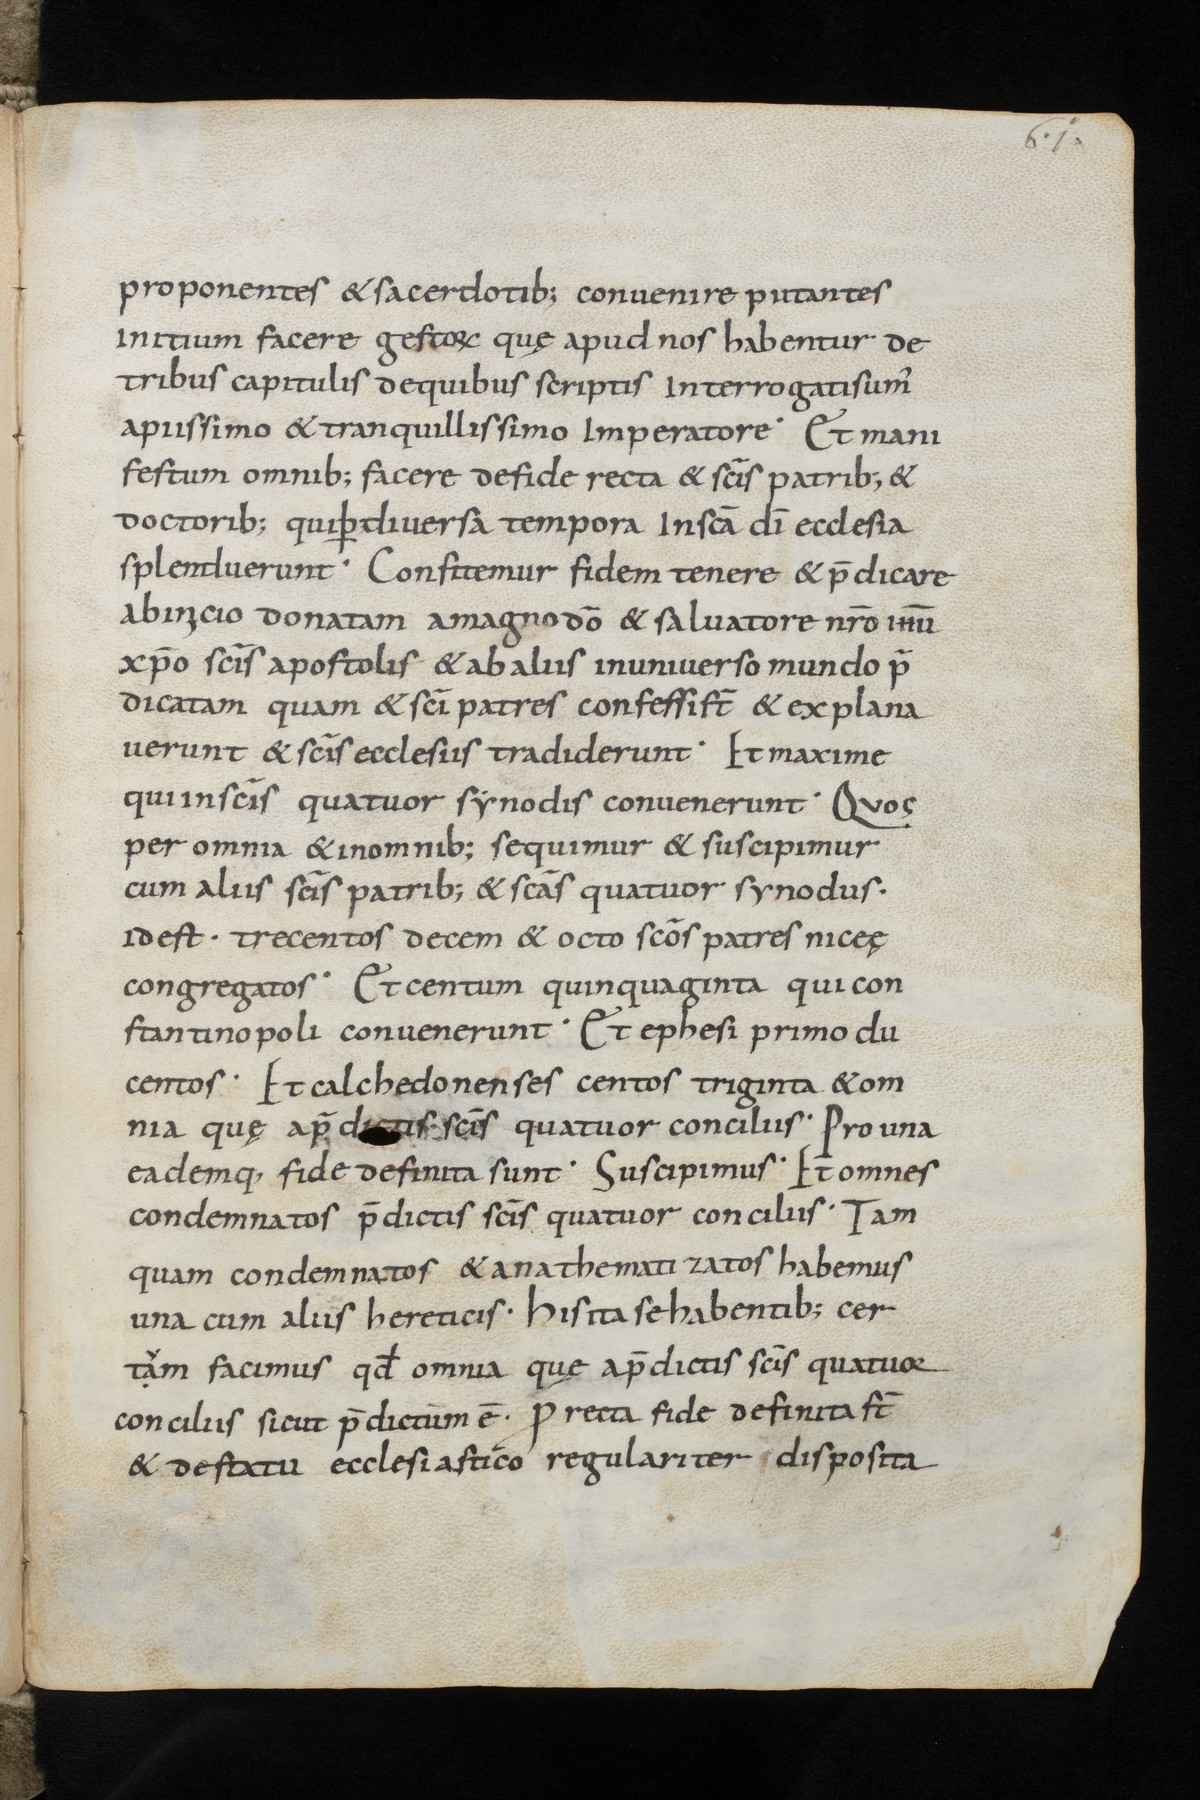 61.
proponentes & sacerdotib; conuenire putantes
initium facere gestoꝝ quę apud nos habentur de
tribus capitulis dequibus scriptis Interrogatisum̃
apiissimo & tranquillissimo Imperatore· Et mani
festum omnib; facere defide recta & scīs patrib; &
doctorib; qui ꝑ diuersa tempora Inscā dī ecclesia
splenduerunt· Confitemur fidem tenere & p̄dicare
abinicio donatam amagno dō & saluatore nrō iħu
xp̄o scīs apostolis & ab aliis inuniuerso mundo p̄
dicatam quam & scī patres confessi st̄ & explana
uerunt & scīs ecclesiis tradiderunt· Et maxime
qui inscīs quatuor sẏnodis conuenerunt· Quos
per omnia & inomnib; sequimur & suscipimur
cum aliis scīs patrib; & scās quatuor synodus·
idest· trecentos decem & octo scōs patres niceę
congregatos· Et centum quinquaginta qui con
stantinopoli conuenerunt· Et ephesi primo du
centos· Et calchedonenses centos triginta & om
nia quę ap̄dictis scīs quatuor conciliis· Pro una
eademq, fide definita sunt· Suscipimus· Et omnes
condemnatos p̄dictis scīs quatuor conciliis· Tam
quam condemnatos & anathematizatos habemus
una cum aliis hereticis· his ita se habentib; cer
tam facimus qđ omnia quę ap̄dictis scīs quatuor
conciliis sicut p̄dictum ē· P recta fide definita st̄
& destatu ecclesiastico regulariter disposita